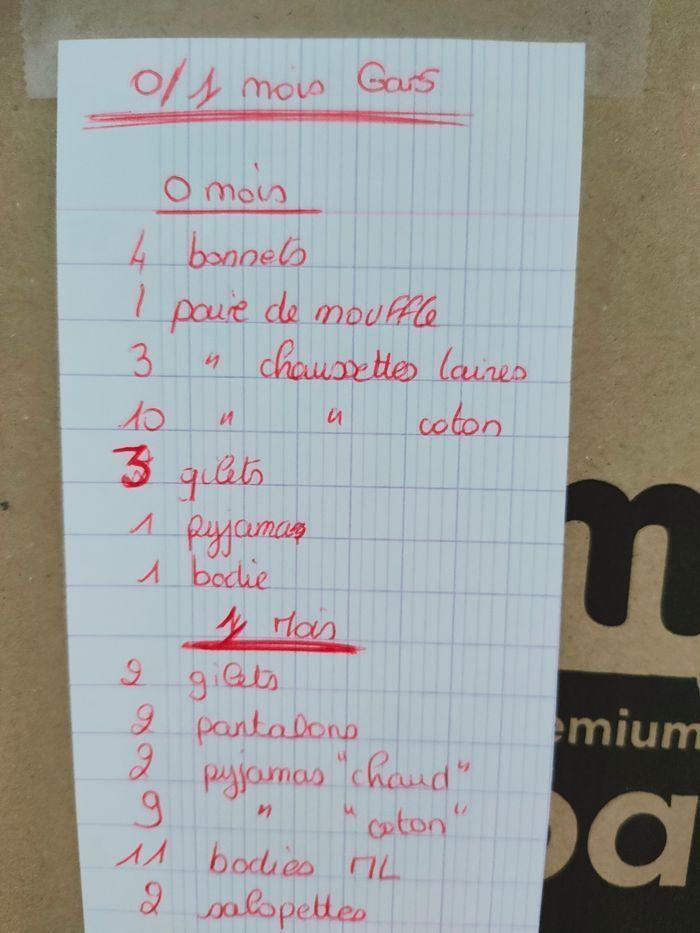 0/1 mois Gars
0 mois
4 bonnets
1 paire de mouffle
3 " chaussettes laines
10 " " coton
3 gilets
1 pyjamas
1 bodie
1 Mois
2 gilets
2 pantalons
2 pyjamas "chaud"
9 " "coton"
11 bodies ML
2 salopettes
emium